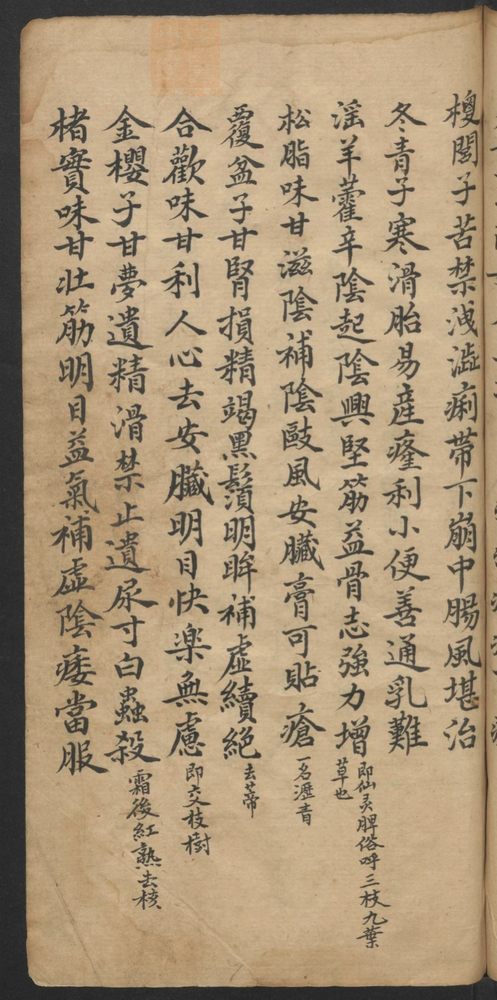 櫌閭子苦禁洩澁痢帶下崩中腸風堪治
冬青子寒滑胎易產癃利小便善通乳難
滛羊藿辛陰起陰興堅筋益骨志強力增 即仙灵脾俗呼三枝九葉草也
松脂味甘滋陰補陰敺風安臟膏可貼瘡 一名瀝青
覆盆子甘腎損精竭黑鬚明眸補虛續絕 去蒂
合歡味甘利人心志安臟明目快楽無慮 即交枝樹
金櫻子甘夢遺精滑禁止遺尿寸白蟲殺 霜後紅熟去核
楮實味甘壯筋明目益氣補虛陰痿當服